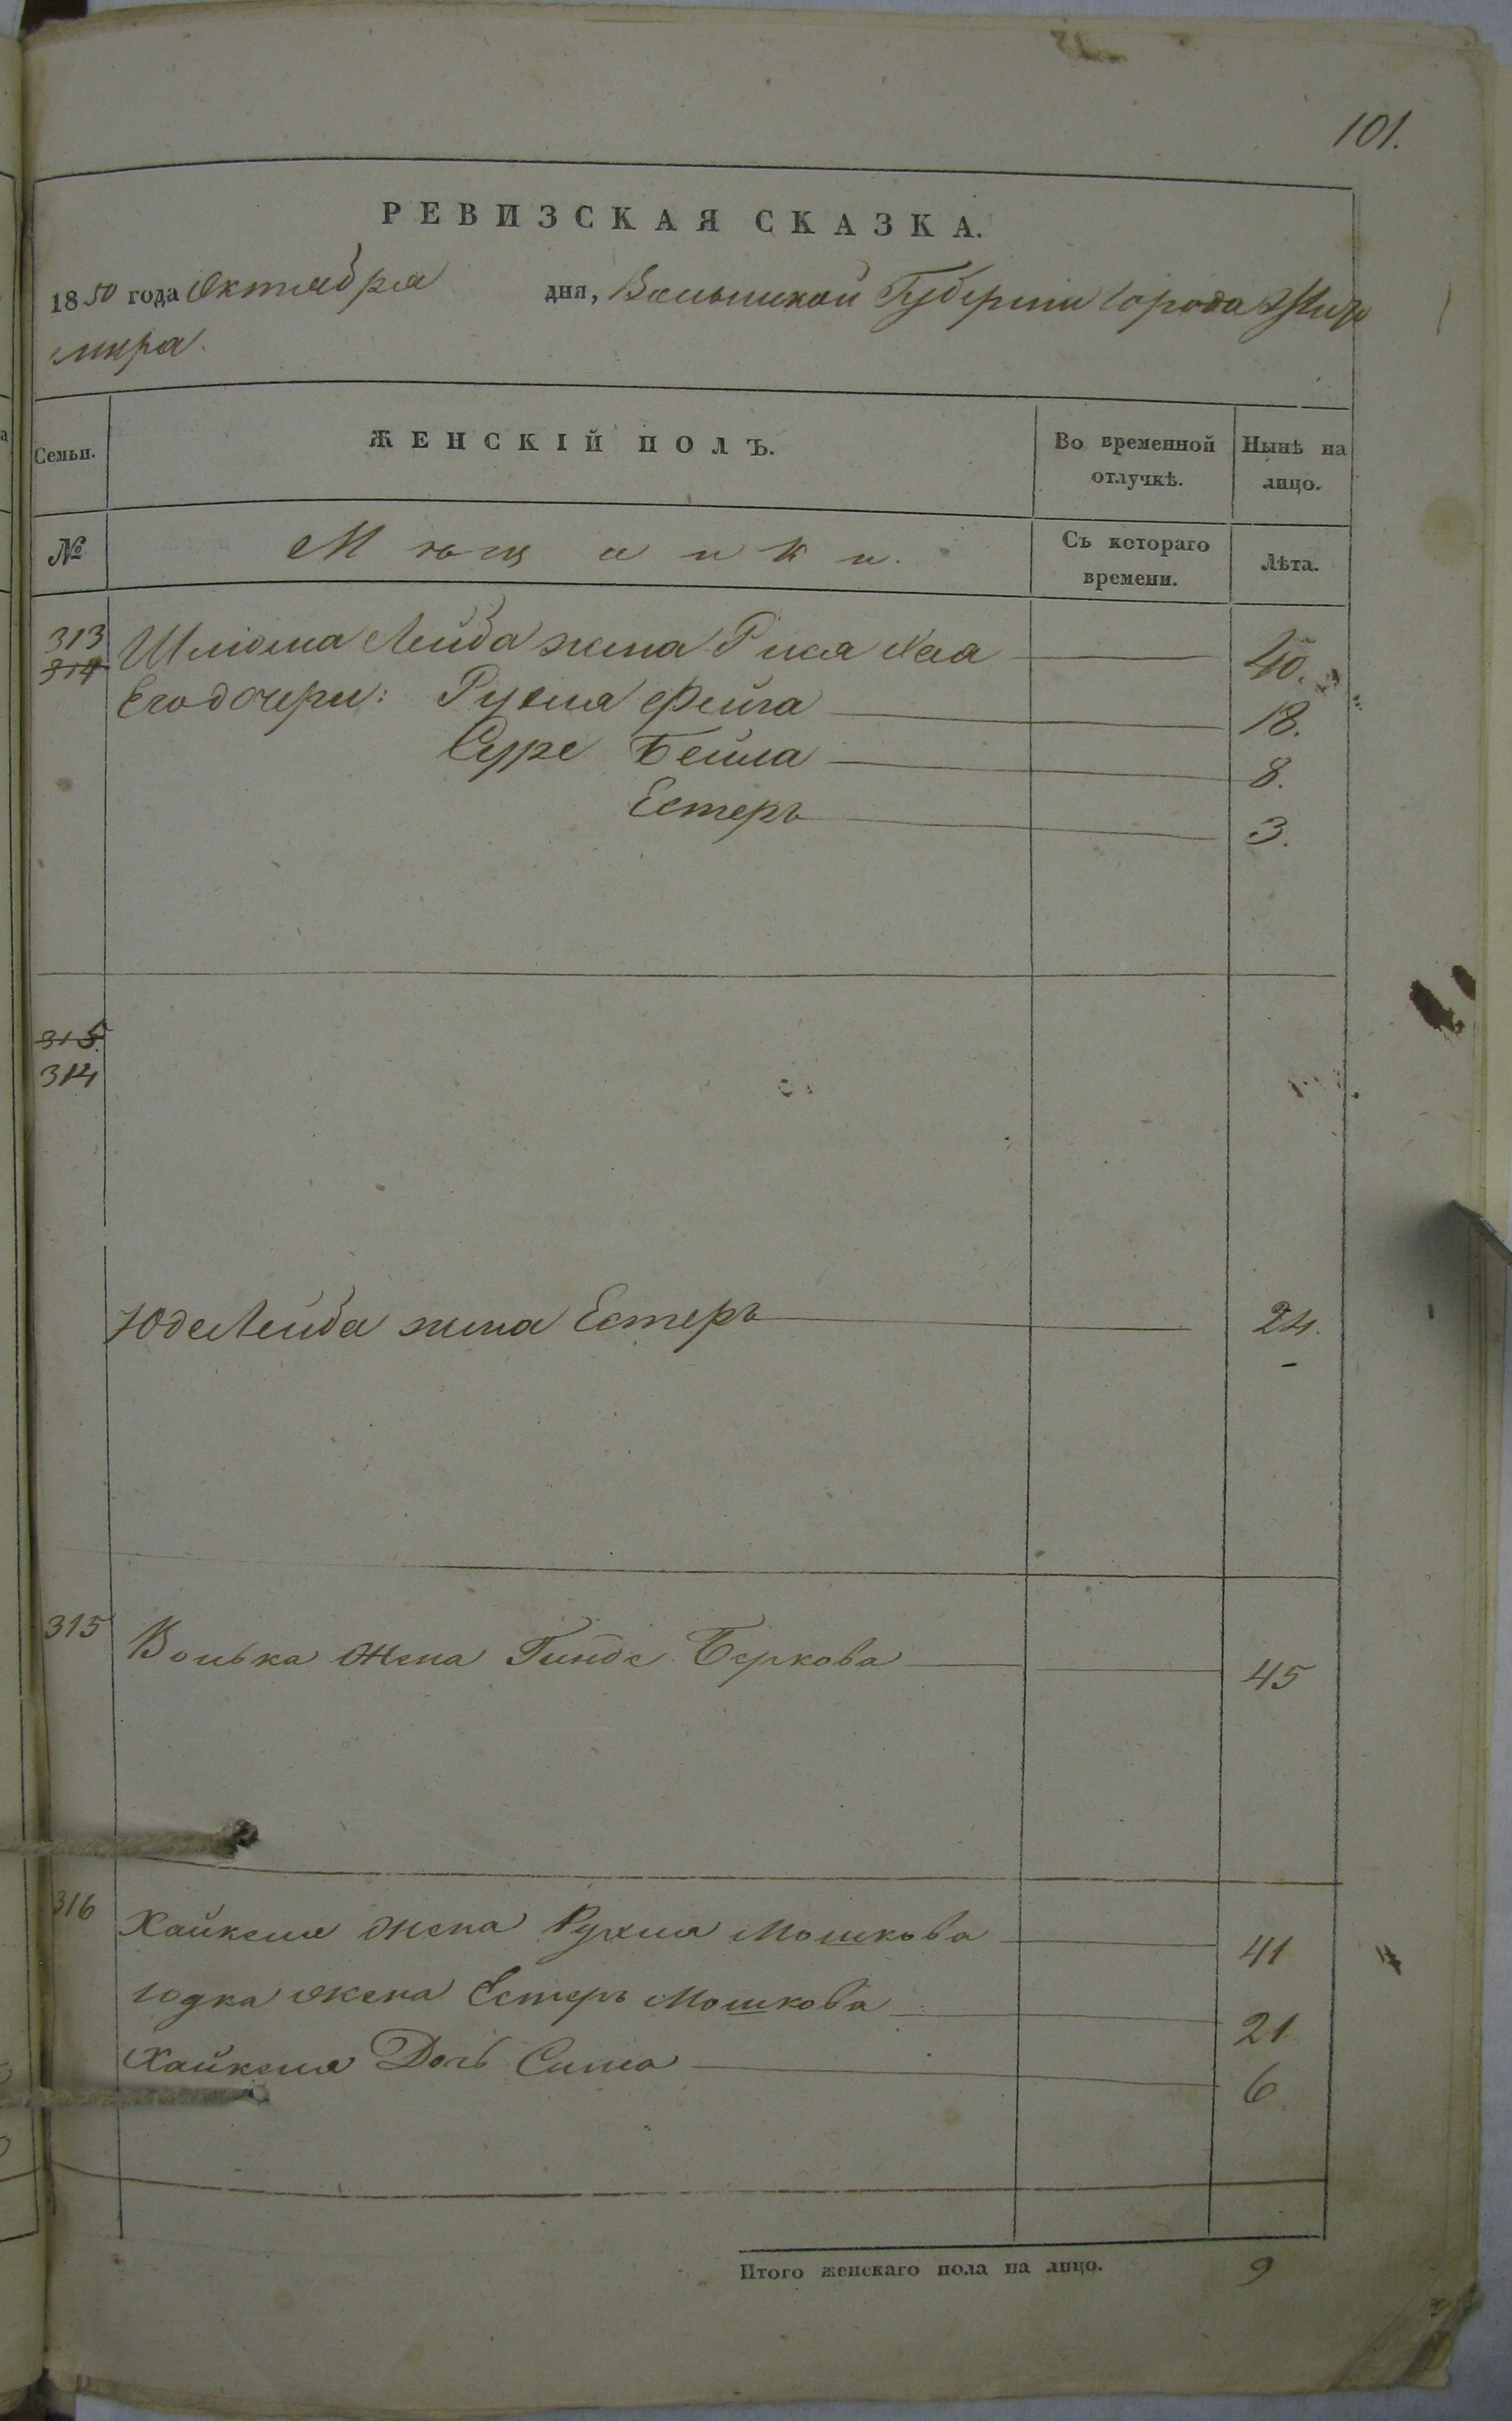 101.
РЕВИЗСКАЯ СКАЗКА.
1850 года Октября дня, Волынской Губернии Города Жито
мира.
Семьи. ЖЕНСКІЙ ПОЛЪ. Во временной отлучкѣ. Нынѣ на лицо.
№ Мѣщанки. Съ котораго времени. Лѣта.
313
314 Шліома Лейба жена Рися Хая 40.
Его дочери: Рухля Фейга 18.
Суре Бейла 8.
Естеръ 3.
315
314
Юде Лейба жена Естеръ 24.
315 Волька жена Гинде Беркова 45
316 Хайкеля жена Рухля Мошкова 41
Іодка жена Естеръ Мошкова 21
Хайкеля Дочь Сима 6
Итого женскаго пола на лицо. 9